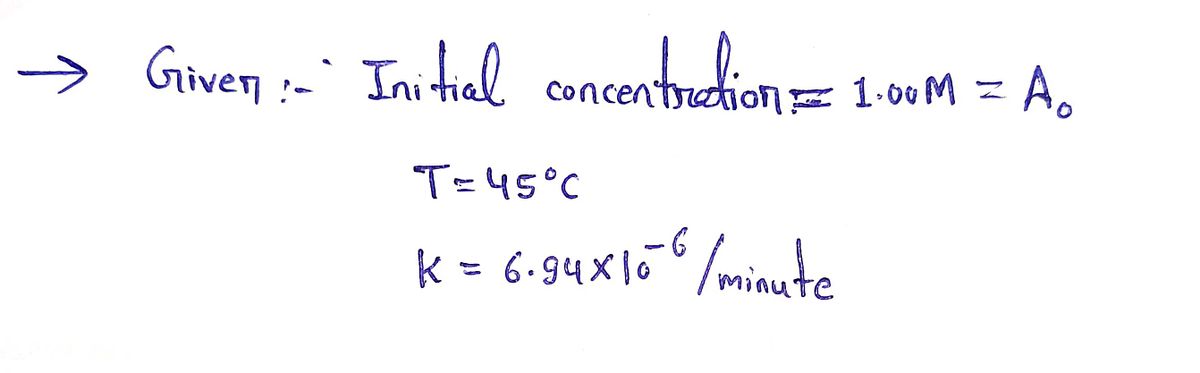 → Given :- Initial concentration = 1.00M = A₀
T = 45°C
k = 6.94 × 10⁻⁶ /minute